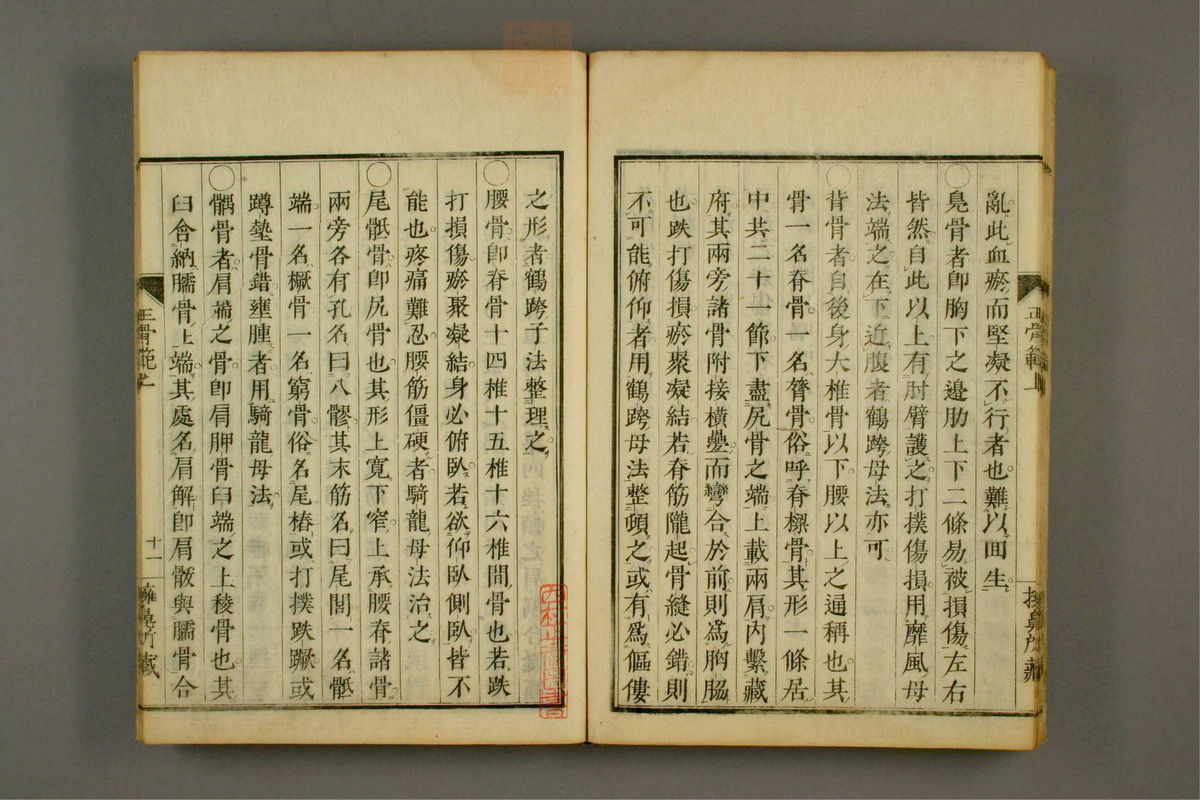 亂此血瘀而堅凝不行者也難以回生
○鳧骨者卽胸下之邉肋上下二條易被損傷左右
皆然自此以上有肘臂護之打撲傷損用靡風母
法端之在下近腹者鶴跨母法亦可
○背骨者自後身大椎骨以下腰以上之通稱也其
骨一名脊骨一名膂骨俗呼脊樑骨其形一條居
中共二十一節下盡尻骨之端上載兩肩內繫藏
府其兩旁諸骨附接橫疊而彎合於前則爲胸脇
也跌打傷損瘀聚凝結若脊筋隴起骨縫必錯則
不可能俯仰者用鶴跨母法整頓之或有爲傴僂
正骨範上
之形者鶴跨子法整理之
○腰骨卽脊骨十四椎十五椎十六椎間骨也若跌
打損傷瘀聚凝結身必俯臥若欲仰臥側臥皆不
能也疼痛難忍腰筋僵硬者騎龍母法治之
○尾骶骨卽尻骨也其形上寬下窄上承腰脊諸骨
兩旁各有孔名曰八髎其末筋名曰尾閭一名骶
端一名橛骨一名窮骨俗名尾樁或打撲跌蹶或
蹲墊骨錯壅腫者用騎龍母法
○髃骨者肩端之骨卽肩胛骨臼端之上稜骨也其
臼含納臑骨上端其處名肩解卽肩骸與臑骨合
正骨範上
十一